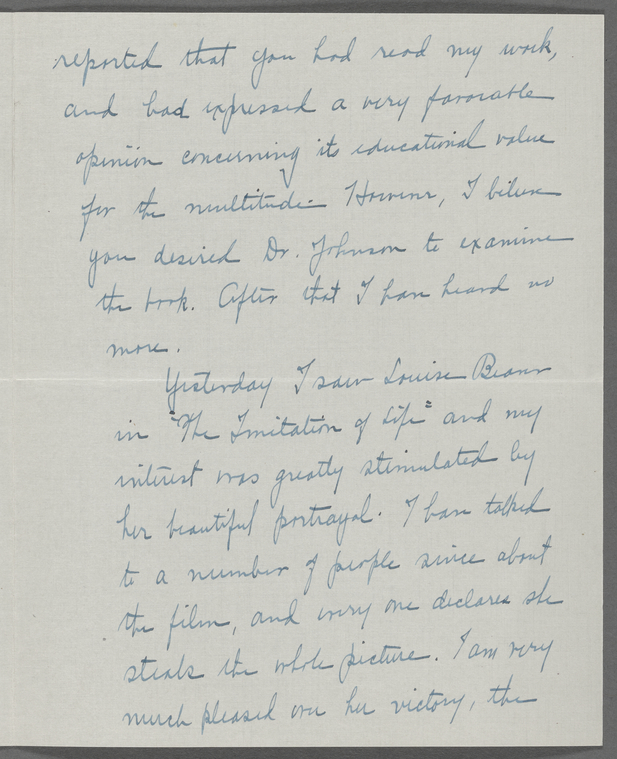 reported that you had read my work,
and had expressed a very favorable
opinion concerning its educational value
for the multitude. However, I believe
you desired Dr. Johnson to examine
the book. After that I have heard no
more.
Yesterday I saw Louise Beavers
in "The Imitation of Life" and my
interest was greatly stimulated by
her beautiful portrayal. I have talked
to a number of people since about
the film, and every one declares she
steals the whole picture. I am very
much pleased over her victory, the